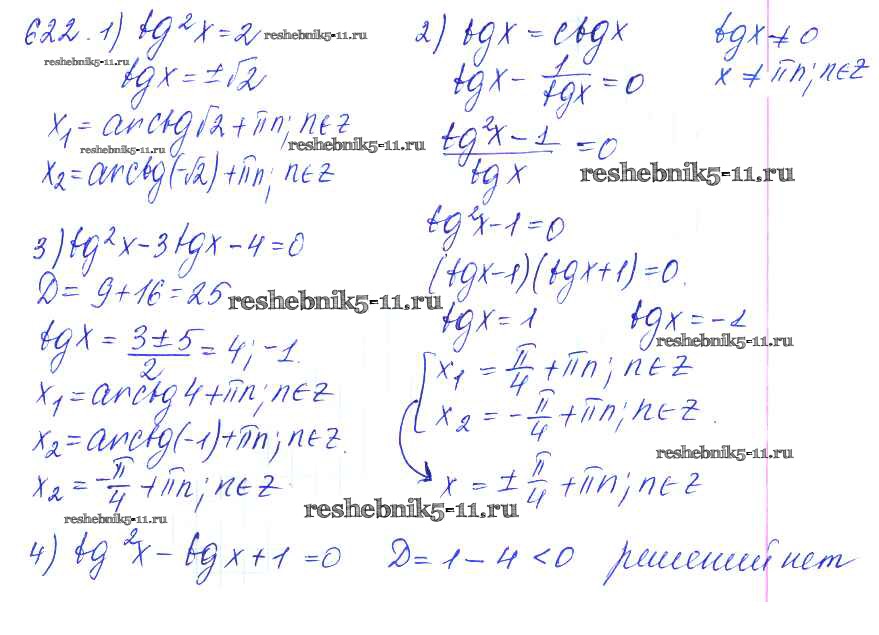 622. 1) tg²x = 2 reshebnik5-11.ru
reshebnik5-11.ru
tgx = ±√2
x₁ = arctg√2 + πn; n∈Z
reshebnik5-11.ru reshebnik5-11.ru
x₂ = arctg(-√2) + πn; n∈Z
2) tgx = ctgx tgx ≠ 0
tgx - 1/tgx = 0 x ≠ πn; n∈Z
(tg²x - 1)/tgx = 0
reshebnik5-11.ru
tg²x - 1 = 0
(tgx-1)(tgx+1) = 0.
tgx = 1 tgx = -1
reshebnik5-11.ru
[ x₁ = π/4 + πn; n∈Z
x₂ = -π/4 + πn; n∈Z.
reshebnik5-11.ru
x = ± π/4 + πn; n∈Z
3) tg²x - 3tgx - 4 = 0
D = 9 + 16 = 25 reshebnik5-11.ru
tgx = (3±5)/2 = 4; -1.
x₁ = arctg4 + πn; n∈Z
x₂ = arctg(-1) + πn; n∈Z.
x₂ = -π/4 + πn; n∈Z.
reshebnik5-11.ru reshebnik5-11.ru
4) tg²x - tgx + 1 = 0 D = 1 - 4 < 0 решений нет